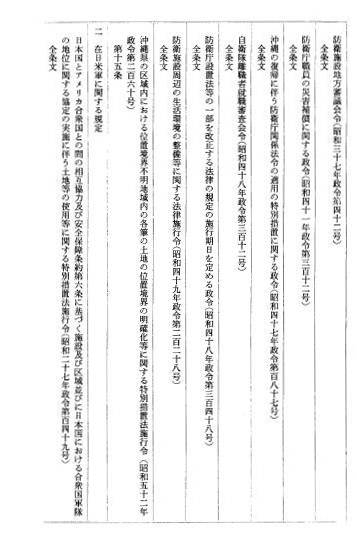 防衛施設地方審議会令(昭和三十七年政令第四十二号)
全条文
防衛庁職員の災害補償に関する政令(昭和四十一年政令第三百十二号)
全条文
沖縄の復帰に伴う防衛庁関係法令の適用の特別措置に関する政令(昭和四十七年政令第百八十七号)
全条文
自衛隊離職者就職審査会令(昭和四十八年政令第三百十二号)
全条文
防衛庁設置法等の一部を改正する法律の規定の施行期日を定める政令(昭和四十八年政令第三百四十八号)
全条文
防衛施設周辺の生活環境の整備等に関する法律施行令(昭和四十九年政令第二百二十八号)
全条文
沖縄県の区域内における位置境界不明地域内の各筆の土地の位置境界の明確化等に関する特別措置法施行令(昭和五十二年
政令第二百六十号)
第十五条
二 在日米軍に関する規定
日本国とアメリカ合衆国との間の相互協力及び安全保障条約第六条に基づく施設及び区域並びに日本国における合衆国軍隊
の地位に関する協定の実施に伴う土地等の使用等に関する特別措置法施行令(昭和二十七年政令第百四十九号)
全条文